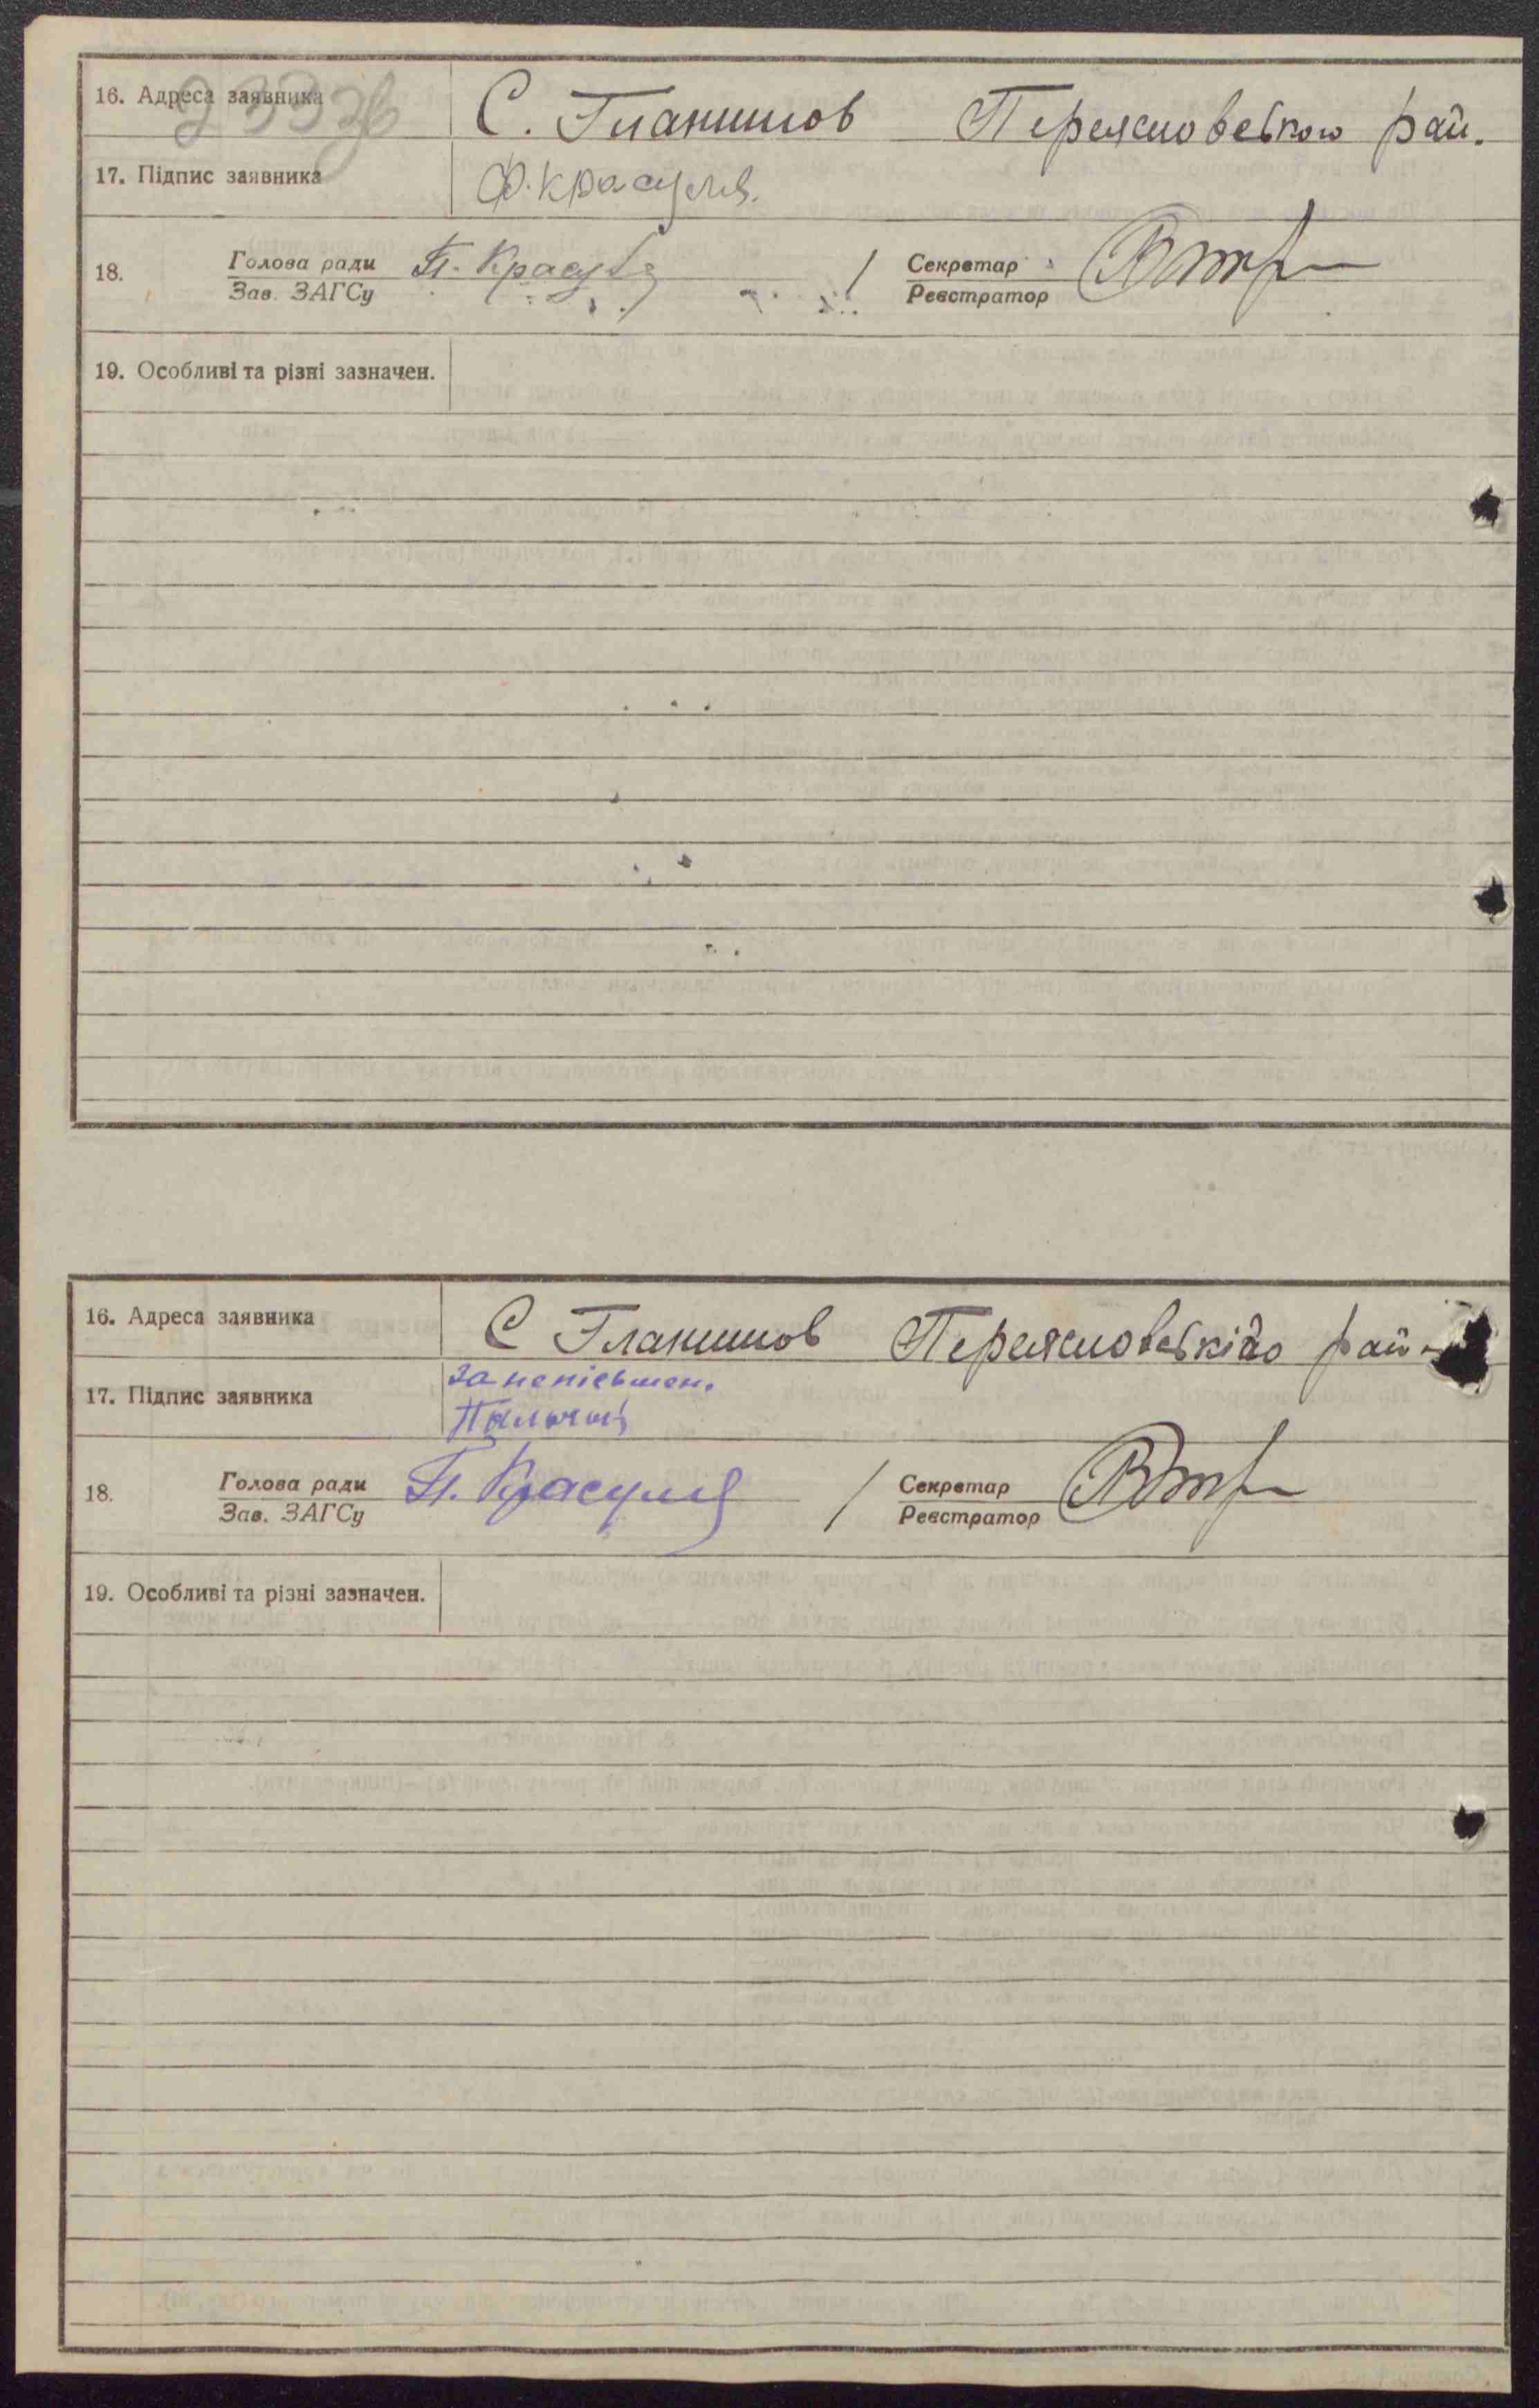 16. Адреса заявника С. Гланишов Переяславського рай.
17. Підпис заявника Ф. Красуля.
18. Голова ради П. Красуля / Секретар
Зав. ЗАГСу Реєстратор
19. Особливі та різні зазначен.
16. Адреса заявника С Гланишов рай.
17. Підпис заявника За неписьмен.
18. Голова ради П. Красуля / Секретар
Зав. ЗАГСу Реєстратор
19. Особливі та різні зазначен.